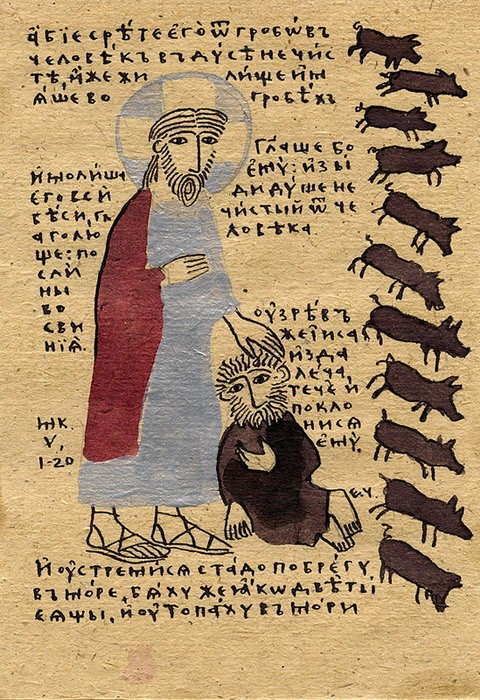 А҆БІЕ СРѢТЕ ЕГО̀ Ѿ ГРОБѠВЪ
ЧЕЛОВѢКЪ ВЪ ДУСѢ НЕЧИС
ТѢ, И҆ЖЕ ЖИ ЛИЩЕ И҆М
Ѧ҆ШЕ ВО ГРОБѢХЪ
ГЛАШЕ БО
ЕМУ: ИЗЫ
ДИ ДУШЕ НЕ
ЧИСТЫЙ Ѿ ЧЕ
ЛОВѢКА
И҆ МОЛИША
ЕГО ВСИ
БѢСИ, ГЛ
АГОЛЮ
ЩЕ: ПО
СЛИ
НЫ
ВО
СВИ
НІѦ.
ОУЗРѢВЪ
ЖЕ ІИСА
ИЗДА
ЛЕЧА,
ТЕЧЕ И
ПОКЛО
НИСѦ
ЕМУ.
МК.
V,
1-20
Е.Ч.
И ОУСТРЕМИСѦ СТАДО ПО БРЕГУ
ВЪ МОРЕ, БѦХУ ЖЕ ІАКѠ ДВѢ ТЫ
СѦЩЫ, И ОУТОПАХУ ВЪ МОРИ